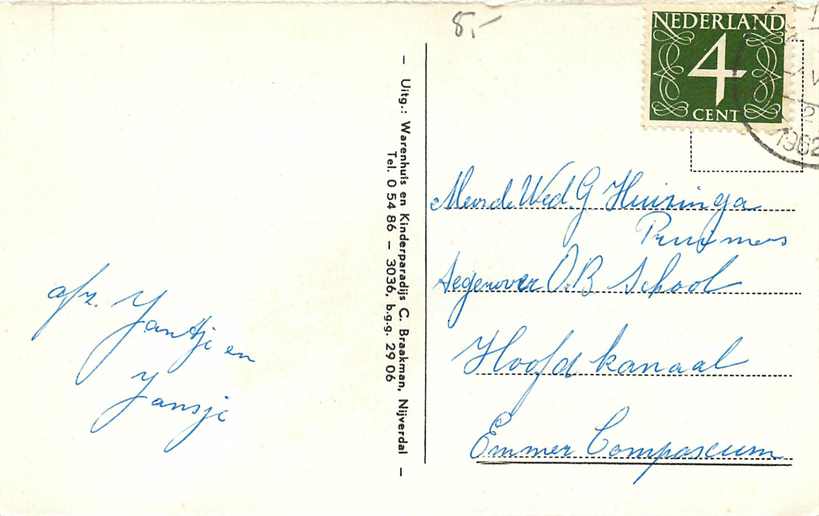 8,-
NEDERLAND
4
CENT
1962
– Uitg.: Warenhuis en Kinderparadijs C. Braakman, Nijverdal –
Tel. 0 54 86 – 3036, b.g.g. 29 06
afz. Jantje en
Jansje
de Wed G Huizinga
Prummers
tegenover O.B School
Hoofdkanaal
Emmer Compascuum